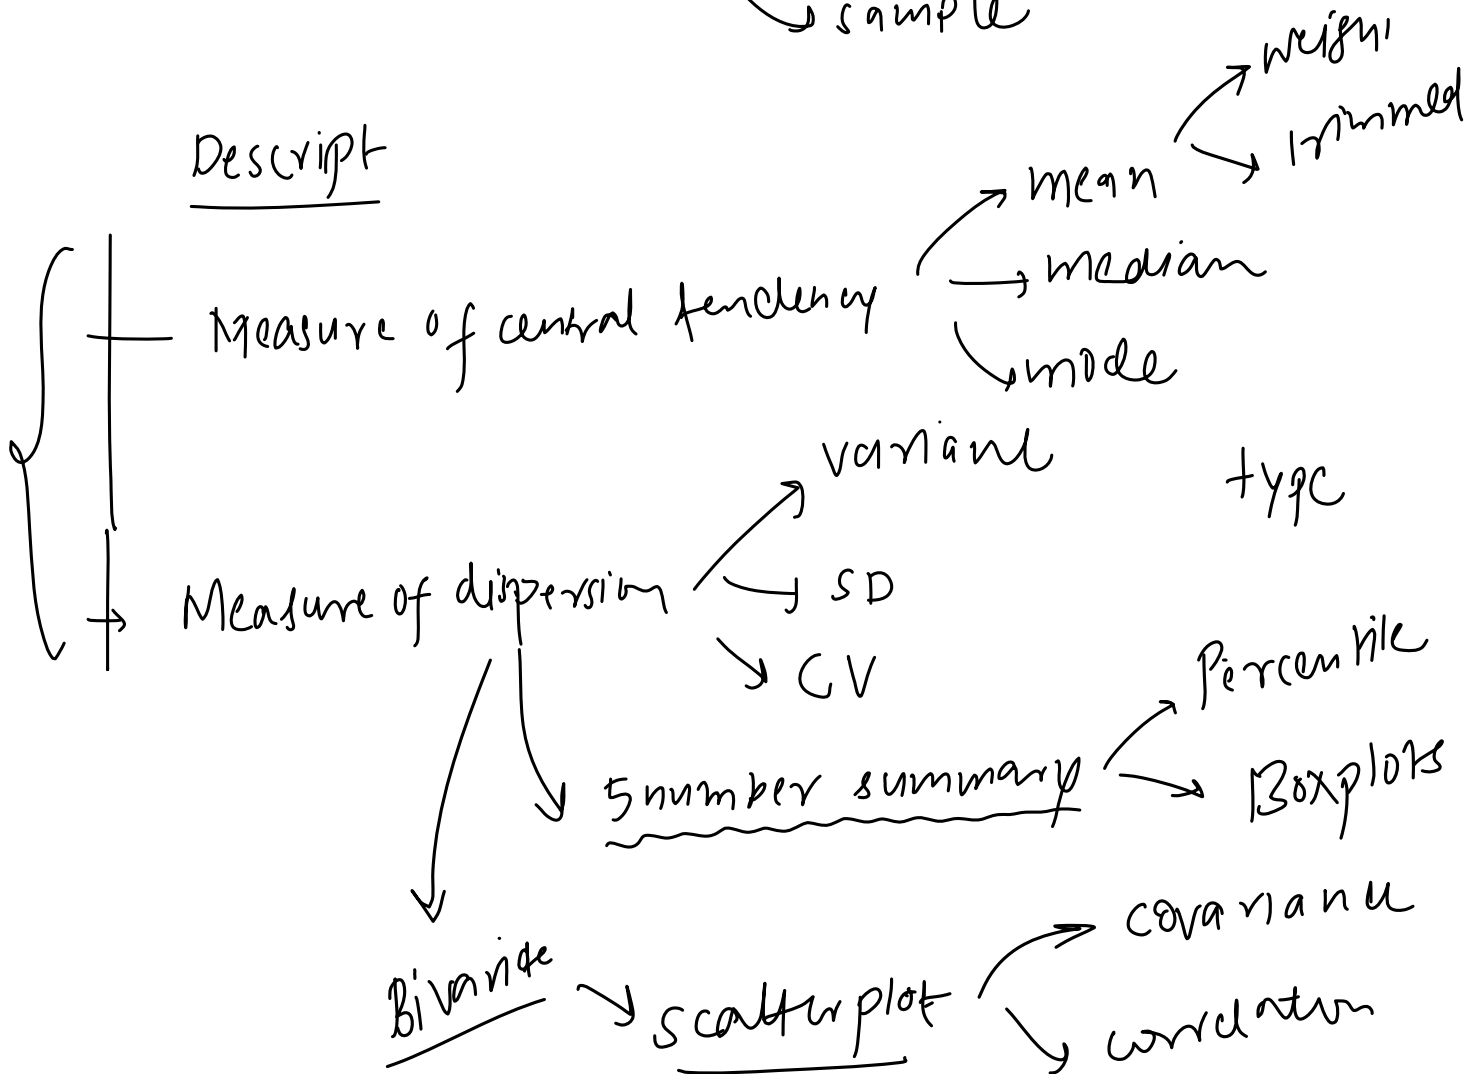 sample
weigh
trimmed
Descript
mean
median
Measure of central tendency
mode
variance
type
Measure of dispersion
SD
CV
Percentile
5 number summary
Boxplots
covariance
Bivariate
scatterplot
correlation